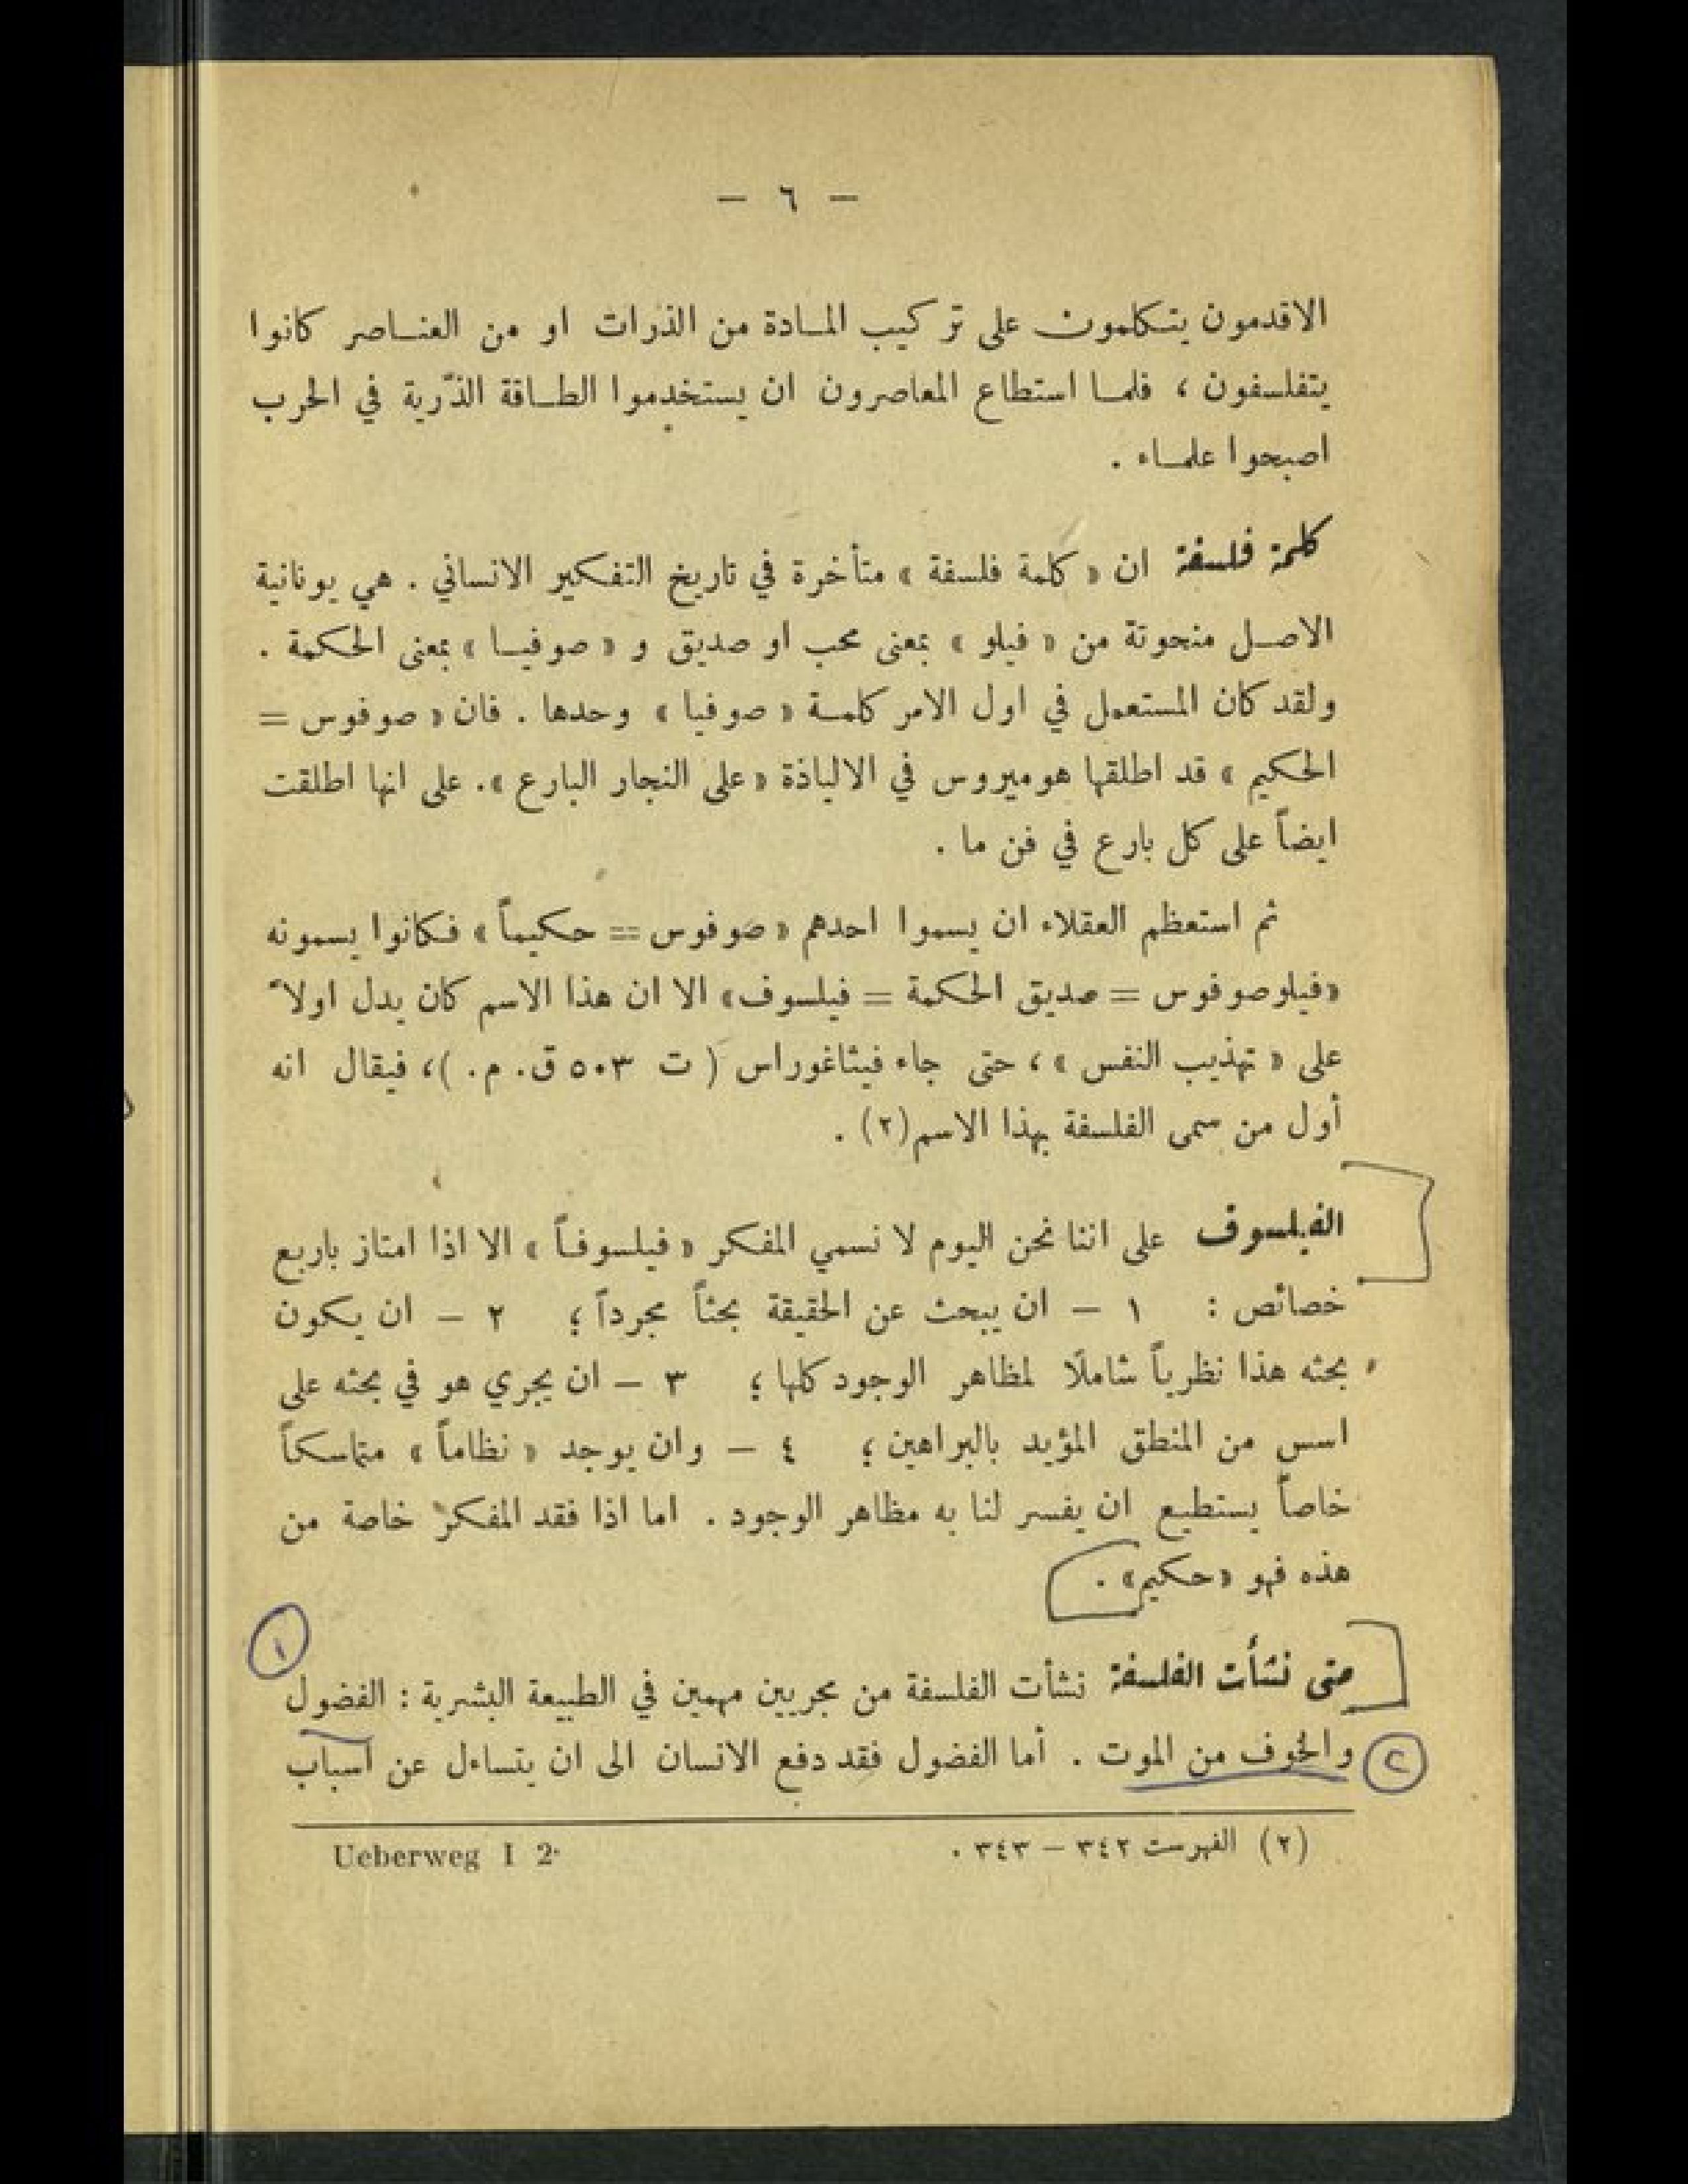 — ٦ —
الاقدمون يتكلمون على تركيب المادة من الذرات او من العناصر كانوا
يتفلسفون ، فلما استطاع المعاصرون ان يستخدموا الطاقة الذّرية في الحرب
اصبحوا علماء .
كلمة فلسفة ان « كلمة فلسفة » متأخرة في تاريخ التفكير الانساني . هي يونانية
الاصل منحوتة من « فيلو » بمعنى محب او صديق و « صوفيا » بمعنى الحكمة .
ولقد كان المستعمل في اول الامر كلمة « صوفيا » وحدها . فان « صوفوس =
الحكيم » قد اطلقها هوميروس في الالياذة « على النجار البارع ». على انها اطلقت
ايضاً على كل بارع في فن ما .
ثم استعظم العقلاء ان يسموا احدهم « صوفوس = حكيماً » فكانوا يسمونه
«فيلوصوفوس = صديق الحكمة = فيلسوف» الا ان هذا الاسم كان يدل اولاً
على « تهذيب النفس » ، حتى جاء فيثاغوراس ( ت ٥٠٣ ق. م. )، فيقال انه
أول من سمى الفلسفة بهذا الاسم(٢) .
الفيلسوف على اننا نحن اليوم لا نسمي المفكر « فيلسوفاً » الا اذا امتاز باربع
خصائص : ١ – ان يبحث عن الحقيقة بحثاً مجرداً ؛ ٢ – ان يكون
بحثه هذا نظرياً شاملًا لمظاهر الوجود كلها ؛ ٣ – ان يجري هو في بحثه على
اسس من المنطق المؤيد بالبراهين ؛ ٤ – وان يوجد « نظاماً » متماسكاً
خاصاً يستطيع ان يفسر لنا به مظاهر الوجود . اما اذا فقد المفكر خاصة من
هذه فهو «حكيم» .
١
متى نشأت الفلسفة نشأت الفلسفة من مجريين مهمين في الطبيعة البشرية : الفضول
٢ والخوف من الموت . أما الفضول فقد دفع الانسان الى ان يتساءل عن اسباب
(٢) الفهرست ٣٤٢ – ٣٤٣ . Ueberweg I 2